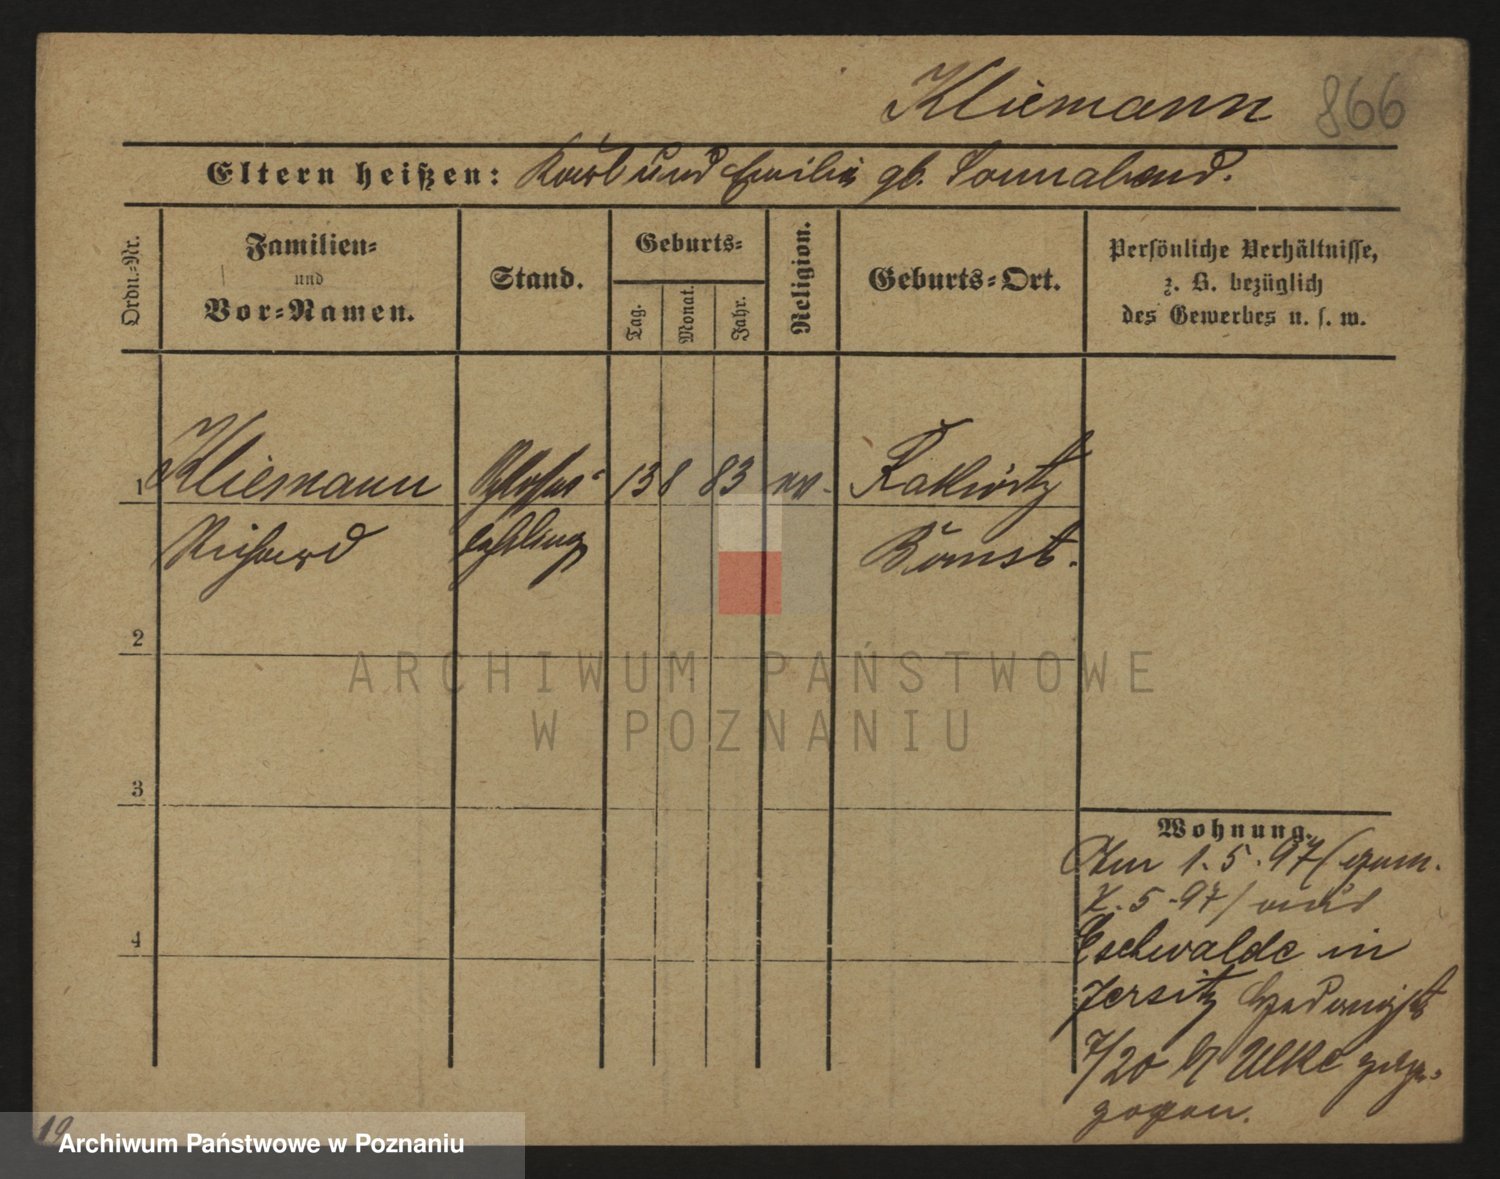 Kliemann 866
Eltern heißen: Karl und Emilie gb. Sonnabend.
Ordn.-Nr.
Familien-
und
Vor-Namen.
Stand.
Geburts-
Tag.
Monat.
Jahr.
Religion.
Geburts-Ort.
Persönliche Verhältnisse,
z. B. bezüglich
des Gewerbes u. s. w.
1 Kliemann Schlosser- 13 8 83 ev. Rakwitz
Richard lehrling Bomst.
2
3
4
Wohnung.
Am 1.5.97 / gem.
7.5.97 / aus
Eschwalde in
Jersitz
7/20 b/ Ulke zuge-
zogen.
ARCHIWUM PAŃSTWOWE
W POZNANIU
19
Archiwum Państwowe w Poznaniu